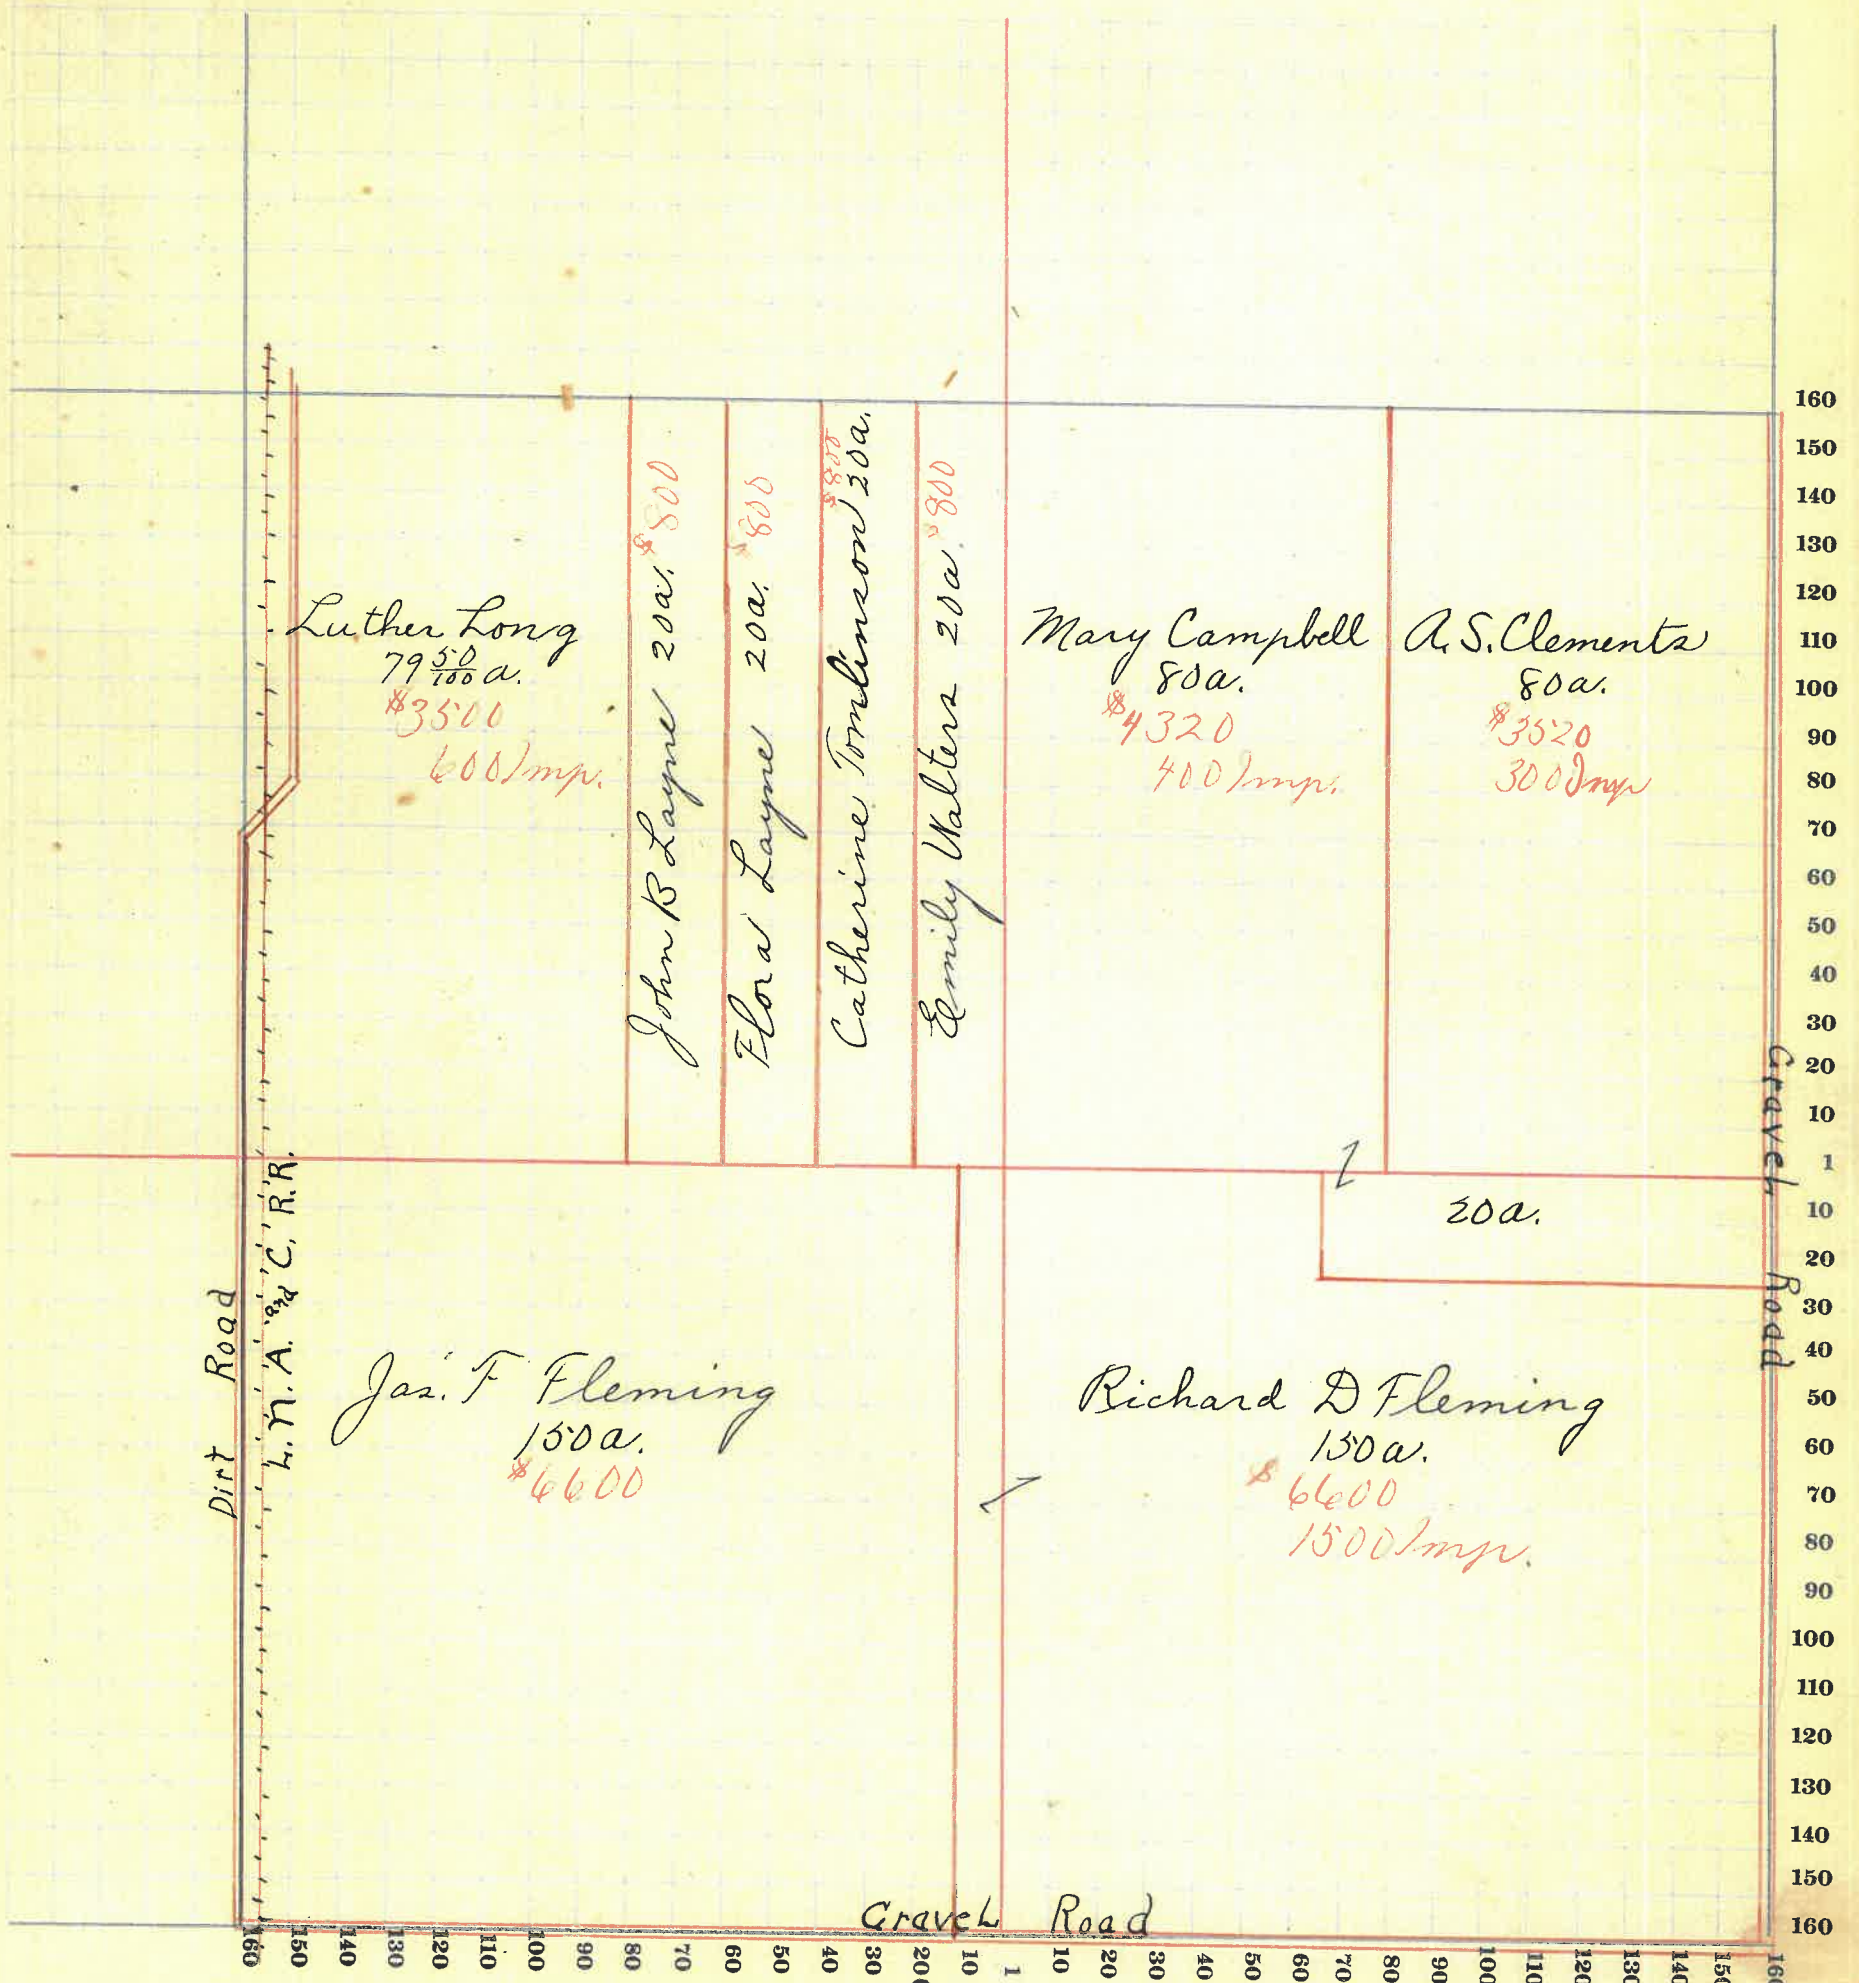 Luther Long
79 50/100 a.
$3500
600 Imp.
John B Layne 20a. $800
Flora Layne 20a. $800
Catherine Tomlinson 20a.
$800
Emily Walters 20a. $800
Mary Campbell
80a.
$4320
400 Imp.
A. S. Clements
80a.
$3520
300 Imp
20a.
Jas. F Fleming
150a.
$6600
Richard D Fleming
150a.
$6600
1500 Imp.
Dirt Road
L. N. A. and C. R.R.
Gravel Road
Gravel Road
160
150
140
130
120
110
100
90
80
70
60
50
40
30
20
10
1
10
20
30
40
50
60
70
80
90
100
110
120
130
140
150
160
160 150 140 130 120 110 100 90 80 70 60 50 40 30 20 10 1 10 20 30 40 50 60 70 80 90 100 110 120 130 140 150 16